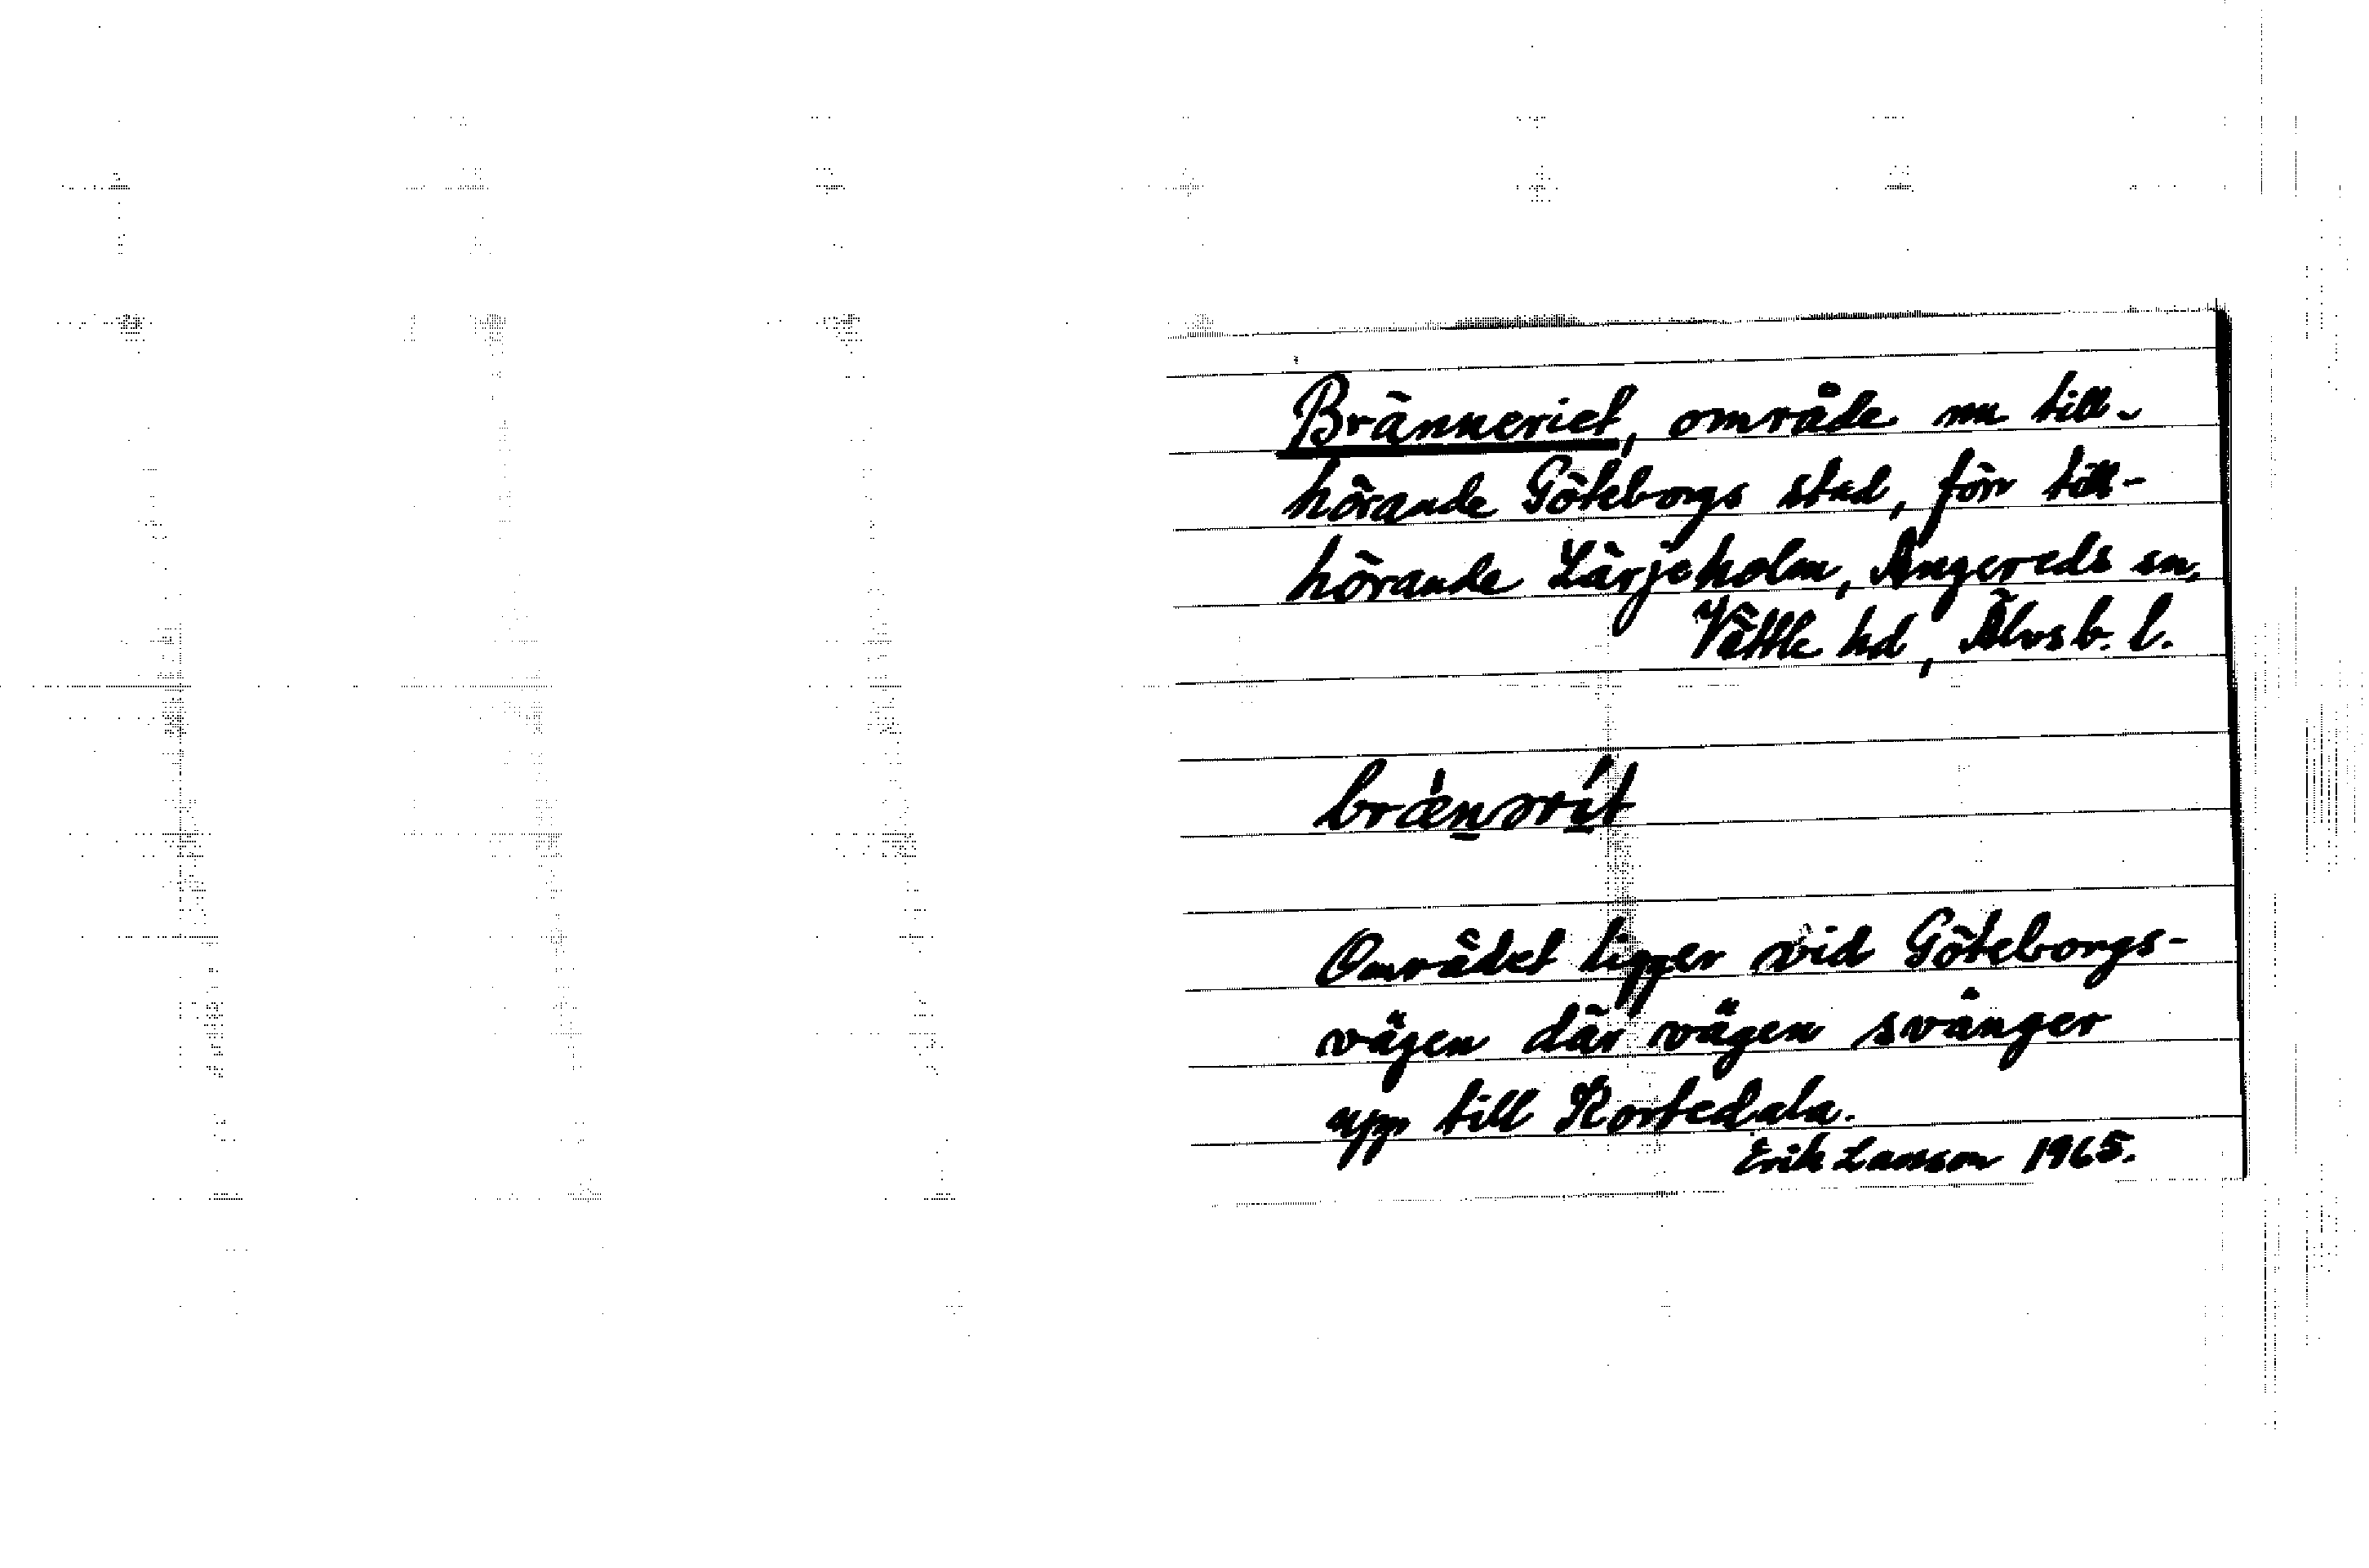 Bränneriet, område nu till-
hörande Göteborgs stad, förr till-
hörande Lärjeholm, Angereds sn,
Vättle hd, Älvsb. l.
Området ligger vid Göteborgs-
vägen där vägen svänger
upp till Kortedala.
Erik Lamson 1965.